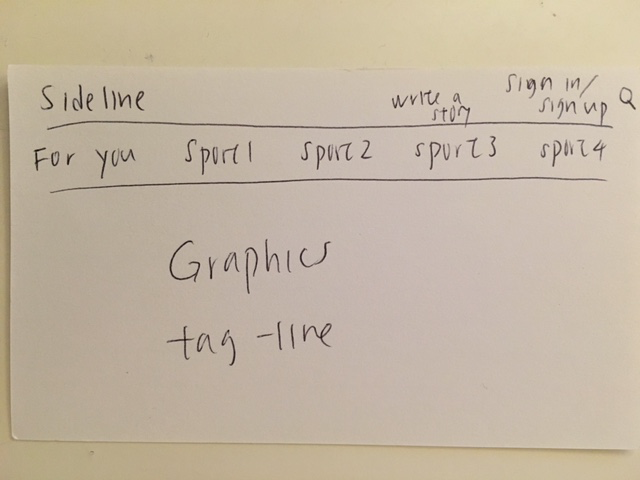 Sideline write a story sign in/ sign up
For you sport1 sport2 sport3 sport4
Graphics
tag-line